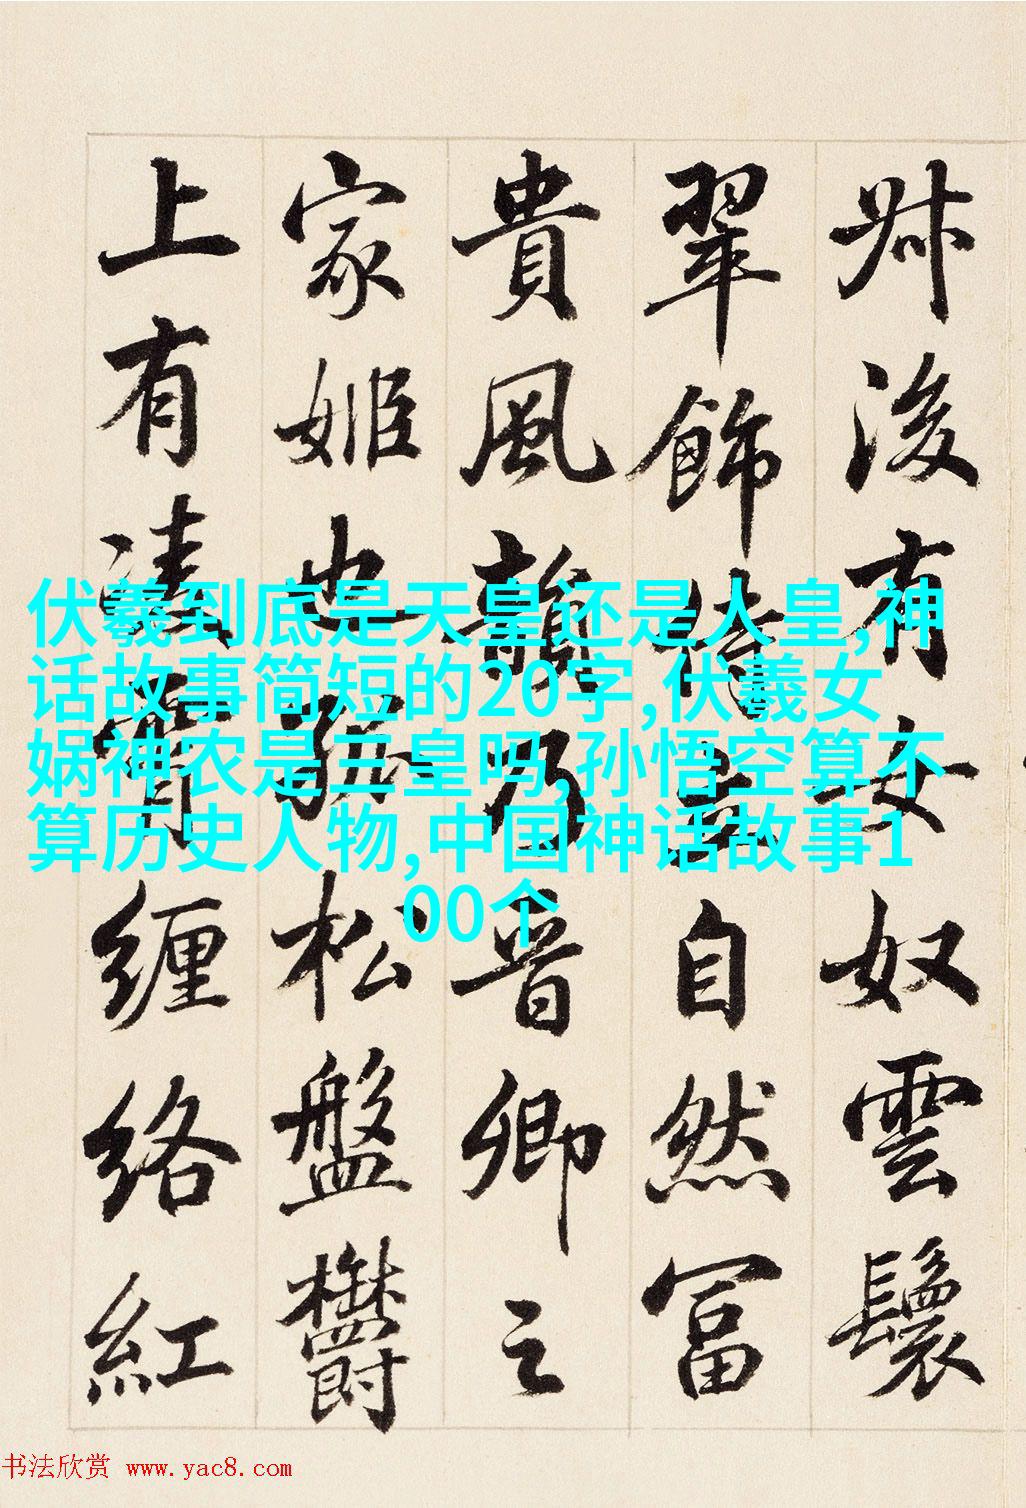 竝後有女奴雲鬟
翠飾倚 自然富
貴風韻乃晉卿之
家姬也 松盤欝
上有凌霄纏络紅
伏羲到底是天皇还是人皇,神
话故事简短的20字,伏羲女
娲神农是三皇吗,孙悟空算不
算历史人物,中国神话故事1
00个
书法欣赏 www.yac8.com